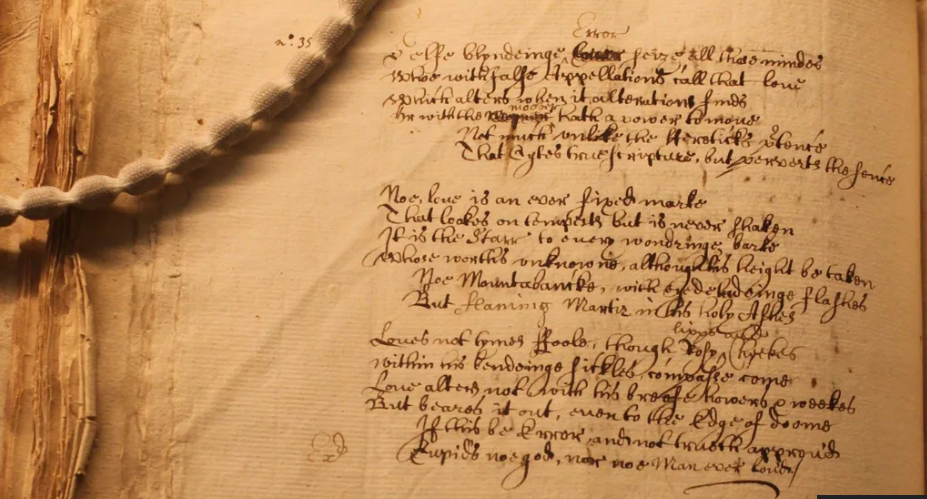 n:° 35
Error
Selfe blyndeinge seize all those mindes
Whoe with false Appellations call that love
Which alters when it alterations finds
Or with the mover hath a power to move
Not much unlike the Hereticks ptence
That Cytes true scripture, but perverts the sence
Noe, love is an ever fixed marke
That lookes on tempests but is never shaken
It is the Starr to every wondringe barke
Whose worths unknowne, although his height be taken
Noe Mountabancke, with eye deludeinge flashes
But flaming Martir in his holy Ashes
lipps and
Loves not tymes Foole, though Rosy Cheekes
within his bendeinge sickles compasse come
Love alters not with his breife howers & weekes
But beares it out, even to the Edge of doome
If this be Error and not trueth approvd
Cupids noe god, nor noe Man ever lovd